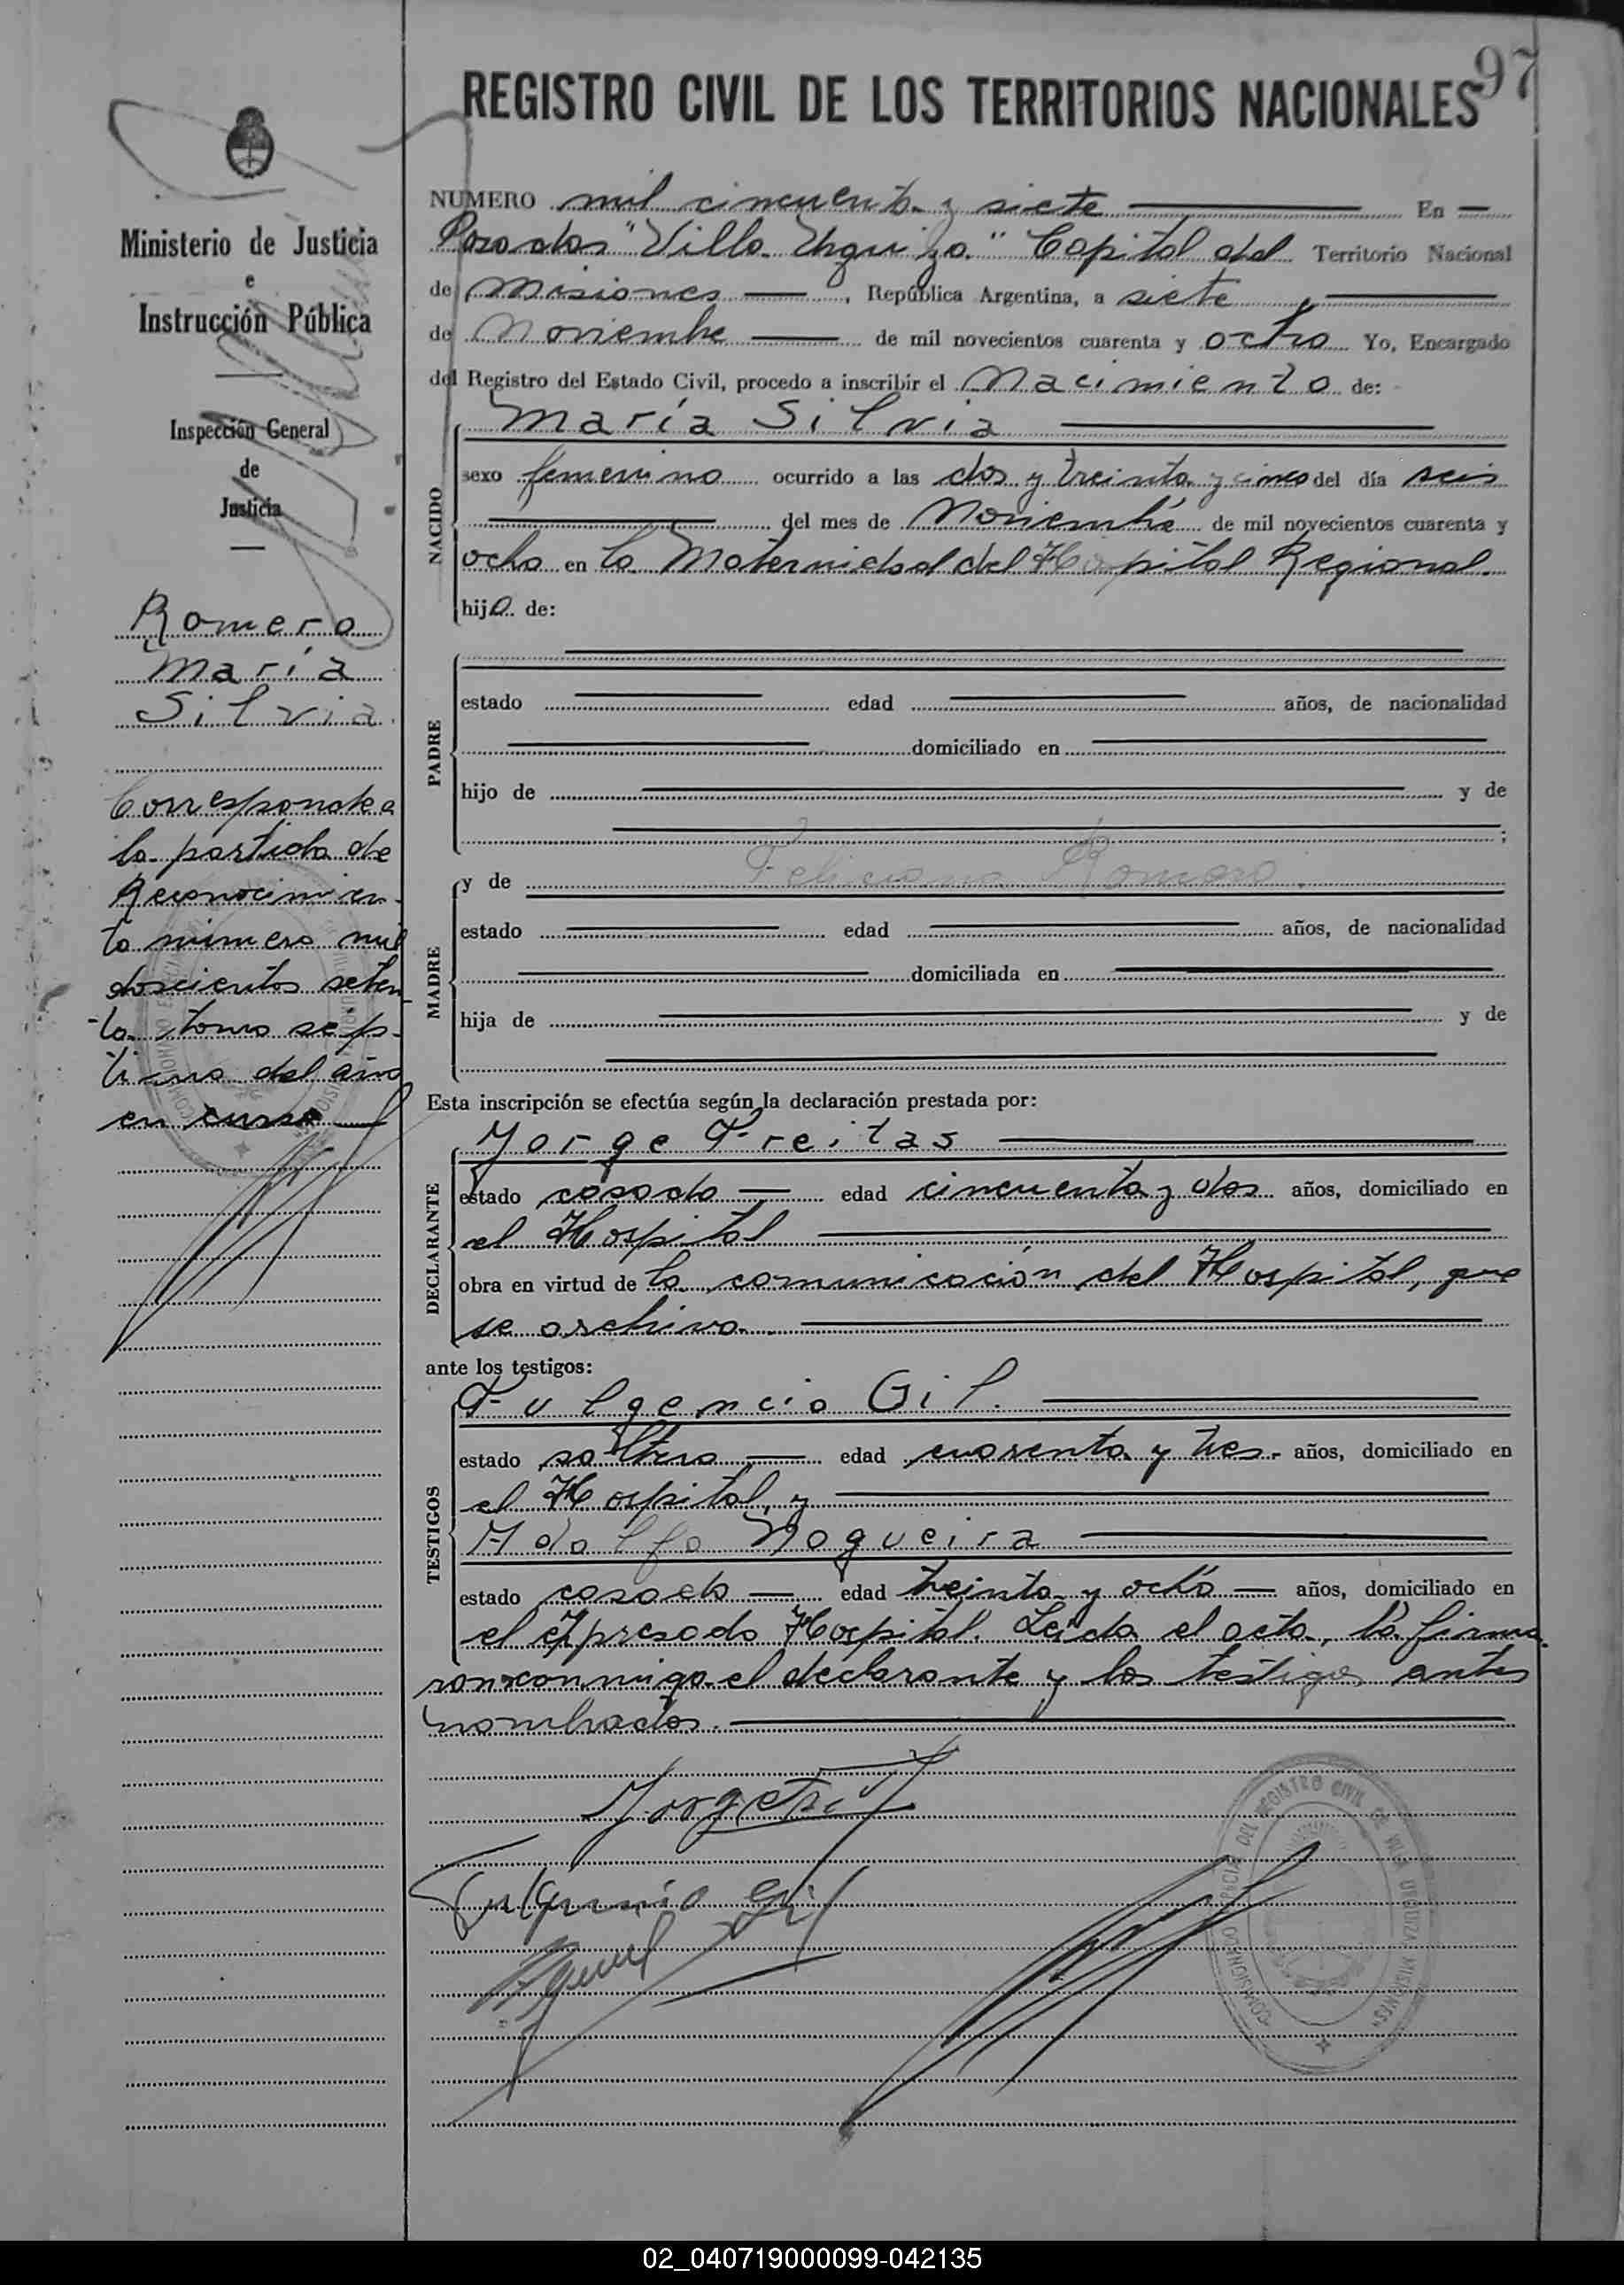 97
REGISTRO CIVIL DE LOS TERRITORIOS NACIONALES
Ministerio de Justicia
e
Instrucción Pública
Inspección General
de
Justicia
Romero
María
Silvia
Corresponde a
la partida de
Reconocimien-
to número mil
doscientos seten
-ta tomo sép-
timo del año
en curso
NUMERO mil cincuenta y siete En
Posadas "Villa Urquiza" Capital del Territorio Nacional
de Misiones, República Argentina, a siete
de Noviembre de mil novecientos cuarenta y ocho Yo, Encargado
del Registro del Estado Civil, procedo a inscribir el Nacimiento de:
María Silvia
NACIDO
sexo femenino ocurrido a las dos y treinta y cinco del día seis
del mes de Noviembre de mil novecientos cuarenta y
ocho en la Maternidad del Hospital Regional.
hija de:
PADRE
estado edad años, de nacionalidad
domiciliado en
hijo de y de
;
MADRE
y de Feliciana Romero.
estado edad años, de nacionalidad
domiciliada en
hija de y de
Esta inscripción se efectúa según la declaración prestada por:
DECLARANTE
Jorge Freitas
estado casado edad cincuenta y dos años, domiciliado en
el Hospital
obra en virtud de la comunicación del Hospital, que
se archiva.
ante los testigos:
TESTIGOS
Fulgencio Gil.
estado soltero edad cuarenta y tres años, domiciliado en
el Hospital, y
Adolfo Nogueira
estado casado edad treinta y ocho años, domiciliado en
el expresado Hospital. Leída el acta, la firma-
ron conmigo el declarante y los testigos antes
nombrados.
Fulgencio Gil
COMISIONADO ESPECIAL DEL REGISTRO CIVIL DE VILLA URQUIZA MISIONES
02_040719000099-042135